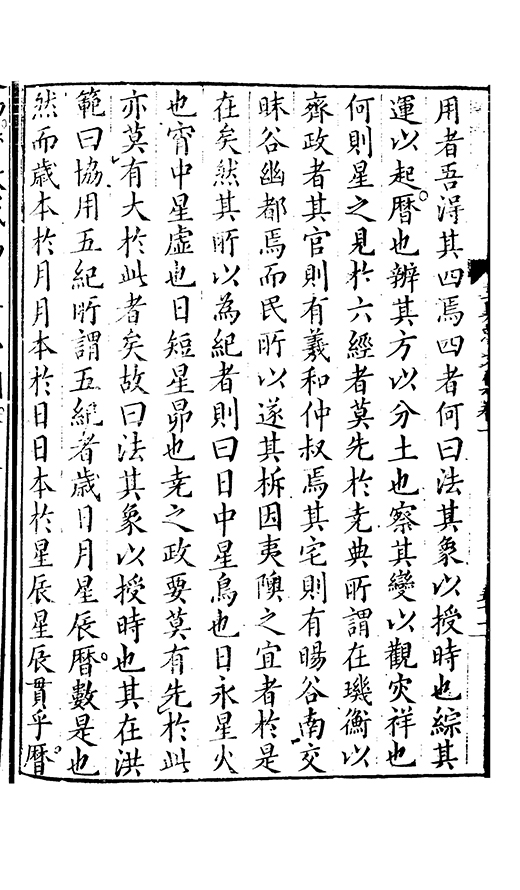 用者吾淂其四焉四者何曰法其象以授時也綜其
運以起曆也辨其方以分土也察其變以觀灾祥也
何則星之見於六經者莫先於尭典所謂在璣衡以
齊政者其官則有羲和仲叔焉其宅則有暘谷南交
昧谷幽都焉而民所以遂其析因夷隩之宜者於是
在矣然其所以為紀者則曰日中星鳥也日永星火
也宵中星虛也日短星昴也尭之政要莫有先於此
亦莫有大於此者矣故曰法其象以授時也其在洪
範曰協用五紀所謂五紀者歲日月星辰曆數是也
然而歲本於月月本於日日本於星辰星辰貫乎曆